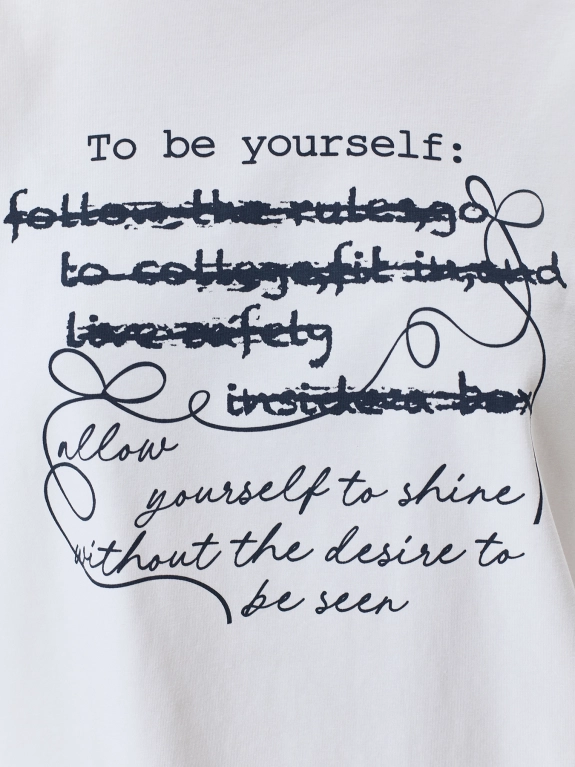 To be yourself:
follow the rules,go
to college,fit in,and
live safely
inside a box
allow
yourself to shine
without the desire to
be seen